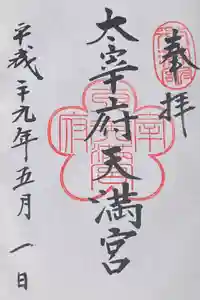 奉拝
太宰府天満宮
平成二十九年五月一日